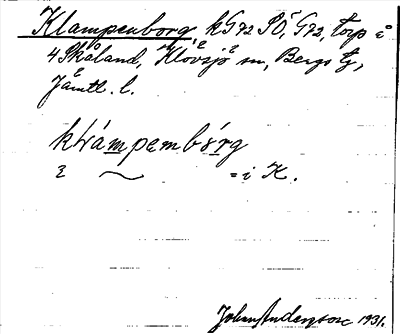 Klampenborg, kG72 SÖ, G72, torp å
4 Skåland, Klövsjö sn, Bergs tg,
Jämtl. l.
klámpembórg
= i K.
John Anderson 1931.